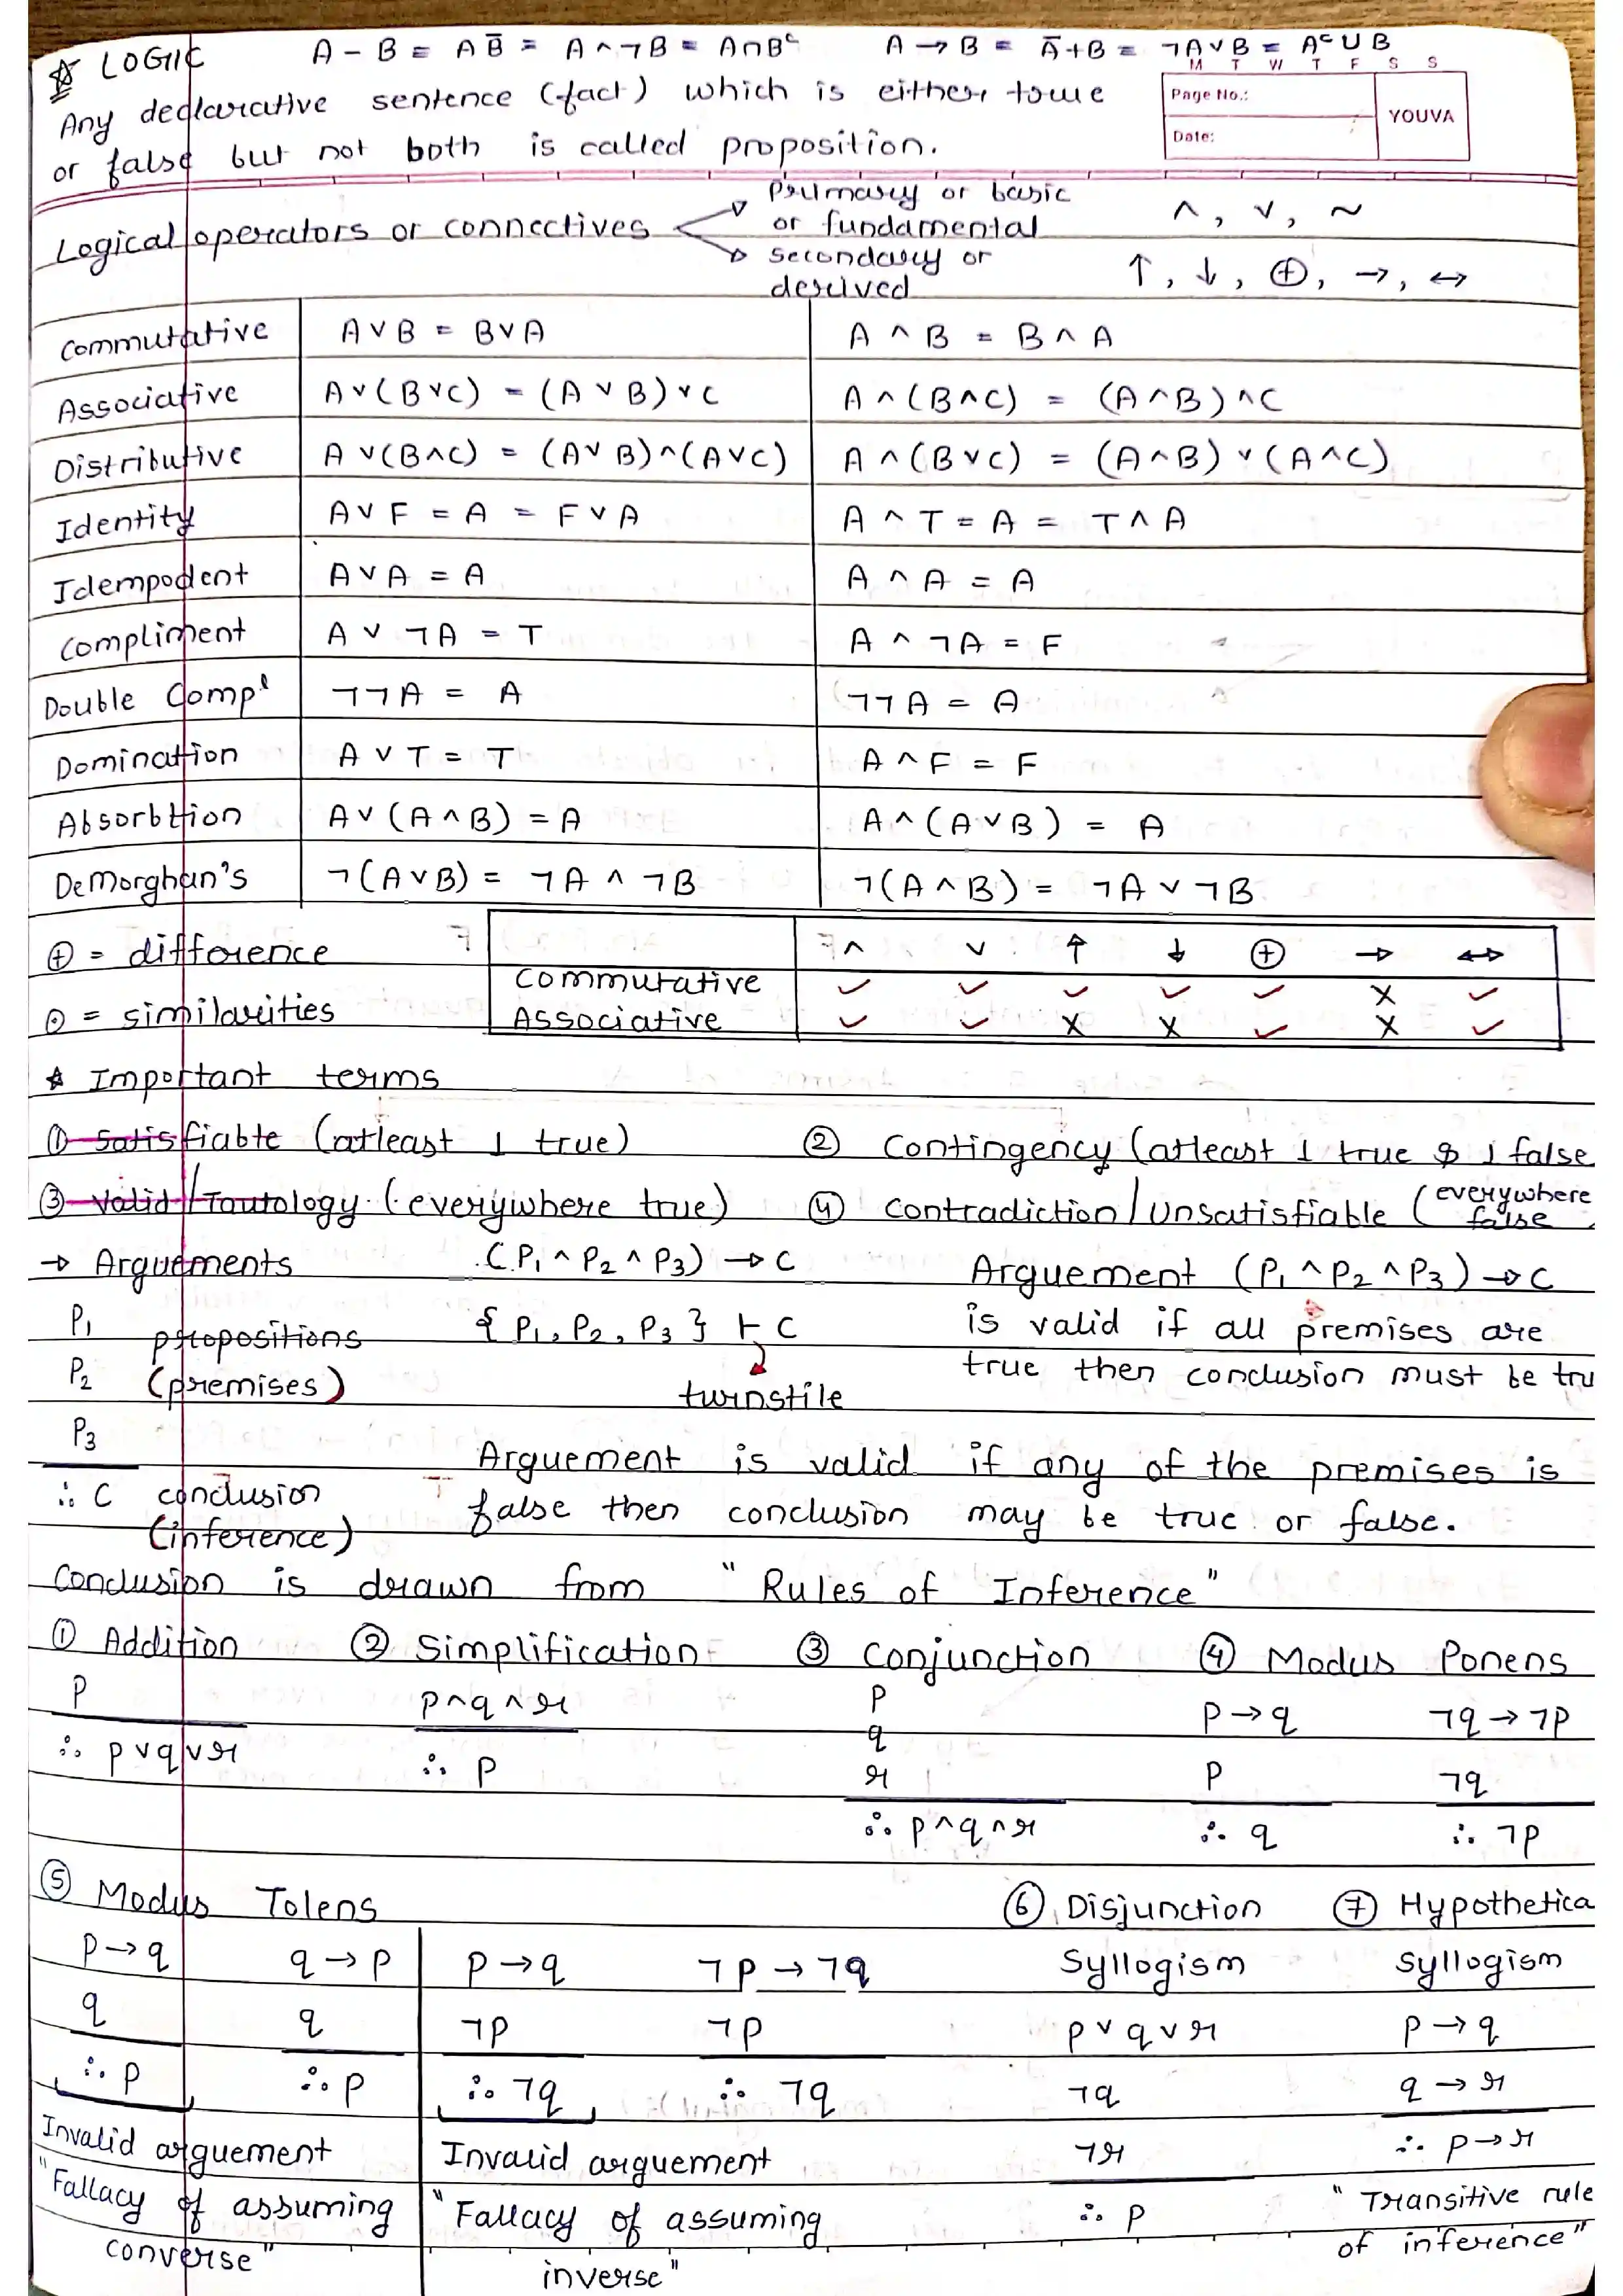 ☆ LOGIC A - B = AB̅ = A ∧ ¬B = A∩Bᶜ A → B = A̅+B = ¬A∨B = Aᶜ ∪ B
M T W T F S S
Page No.:
Date:
YOUVA
Any declarative sentence (fact) which is either true
or false but not both is called proposition.
Logical operators or connectives
Primary or basic or fundamental ∧, ∨, ~
secondary or derived ↑, ↓, ⊕, →, ↔
Commutative A ∨ B = B ∨ A A ∧ B = B ∧ A
Associative A ∨ (B ∨ C) = (A ∨ B) ∨ C A ∧ (B ∧ C) = (A ∧ B) ∧ C
Distributive A ∨ (B ∧ C) = (A ∨ B) ∧ (A ∨ C) A ∧ (B ∨ C) = (A ∧ B) ∨ (A ∧ C)
Identity A ∨ F = A = F ∨ A A ∧ T = A = T ∧ A
Idempodent A ∨ A = A A ∧ A = A
Compliment A ∨ ¬A = T A ∧ ¬A = F
Double Compˡ ¬¬A = A ¬¬A = A
Domination A ∨ T = T A ∧ F = F
Absorbtion A ∨ (A ∧ B) = A A ∧ (A ∨ B) = A
DeMorghan's ¬(A ∨ B) = ¬A ∧ ¬B ¬(A ∧ B) = ¬A ∨ ¬B
⊕ = difference
⊙ = similarities
∧ ∨ ↑ ↓ ⊕ → ↔
Commutative ✓ ✓ ✓ ✓ ✓ X ✓
Associative ✓ ✓ X X ✓ X ✓
☆ Important terms
① Satisfiable (atleast 1 true) ② Contingency (atleast 1 true & 1 false
③ Valid / Tautology (everywhere true) ④ Contradiction / Unsatisfiable (everywhere false
→ Arguements (P₁ ∧ P₂ ∧ P₃) → C
P₁ propositions {P₁, P₂, P₃} ⊢ C
P₂ (premises) turnstile
P₃
∴ C conclusion
(inference)
Arguement (P₁ ∧ P₂ ∧ P₃) → C
is valid if all premises are
true then conclusion must be tru
Arguement is valid if any of the premises is
false then conclusion may be true or false.
Conclusion is drawn from "Rules of Inference"
① Addition ② Simplification ③ Conjunction ④ Modus Ponens
P
∴ p ∨ q ∨ r
p ∧ q ∧ r
∴ P
P
q
r
∴ p ∧ q ∧ r
P → q
P
∴ q
¬q → ¬p
¬q
∴ ¬p
⑤ Modus Tolens
P → q
q
∴ P
q → p
q
∴ p
Invalid arguement
"Fallacy of assuming
converse"
p → q
¬p
∴ ¬q
¬p → ¬q
¬p
∴ ¬q
Invalid arguement
"Fallacy of assuming
inverse"
⑥ Disjunction
Syllogism
p ∨ q ∨ r
¬q
¬r
∴ p
⑦ Hypothetica
Syllogism
p → q
q → r
∴ p → r
"Transitive rule
of inference"